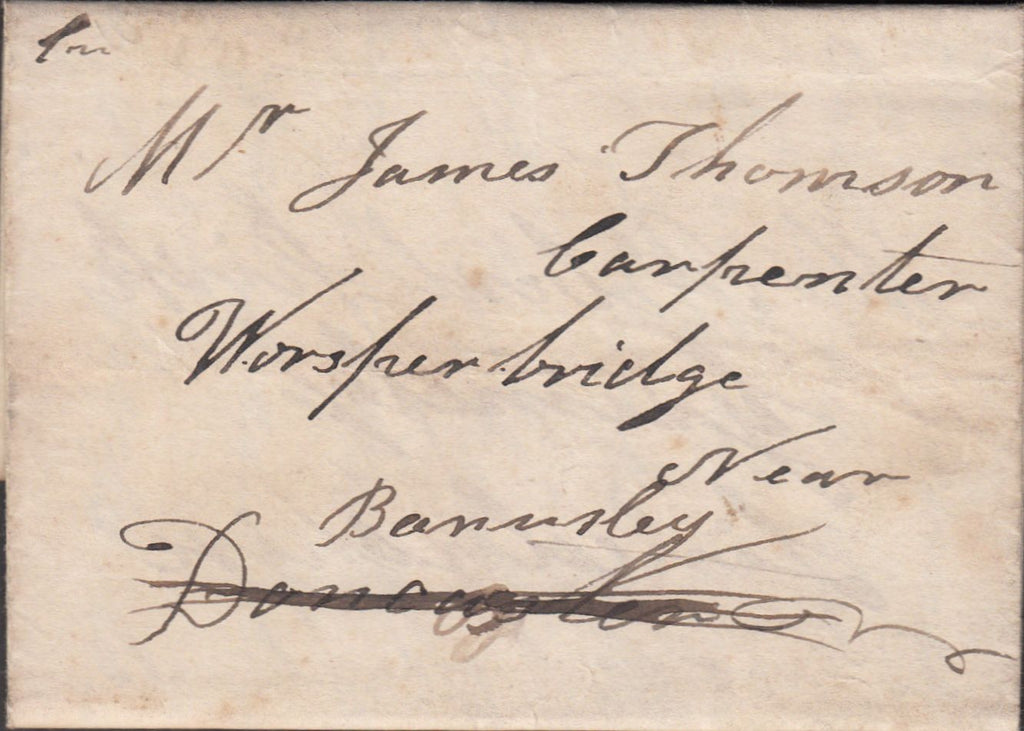 Mr James Thomson
Carpenter
Worsper bridge
Near
Barnsley
Doncaster